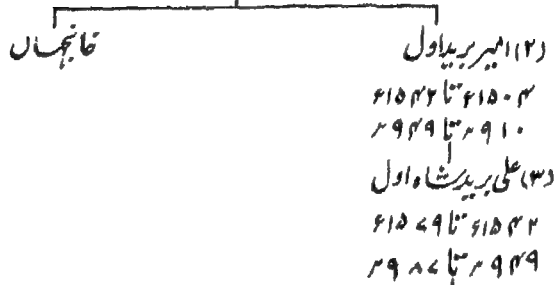 (۲) امیر برید اول خانجہاں
۱۵۰۴ء تا ۱۵۴۲ء
۹۱۰ھ تا ۹۴۹ھ
(۳) علی برید شاہ اول
۱۵۴۲ء تا ۱۵۷۹ء
۹۴۹ھ تا ۹۸۷ھ